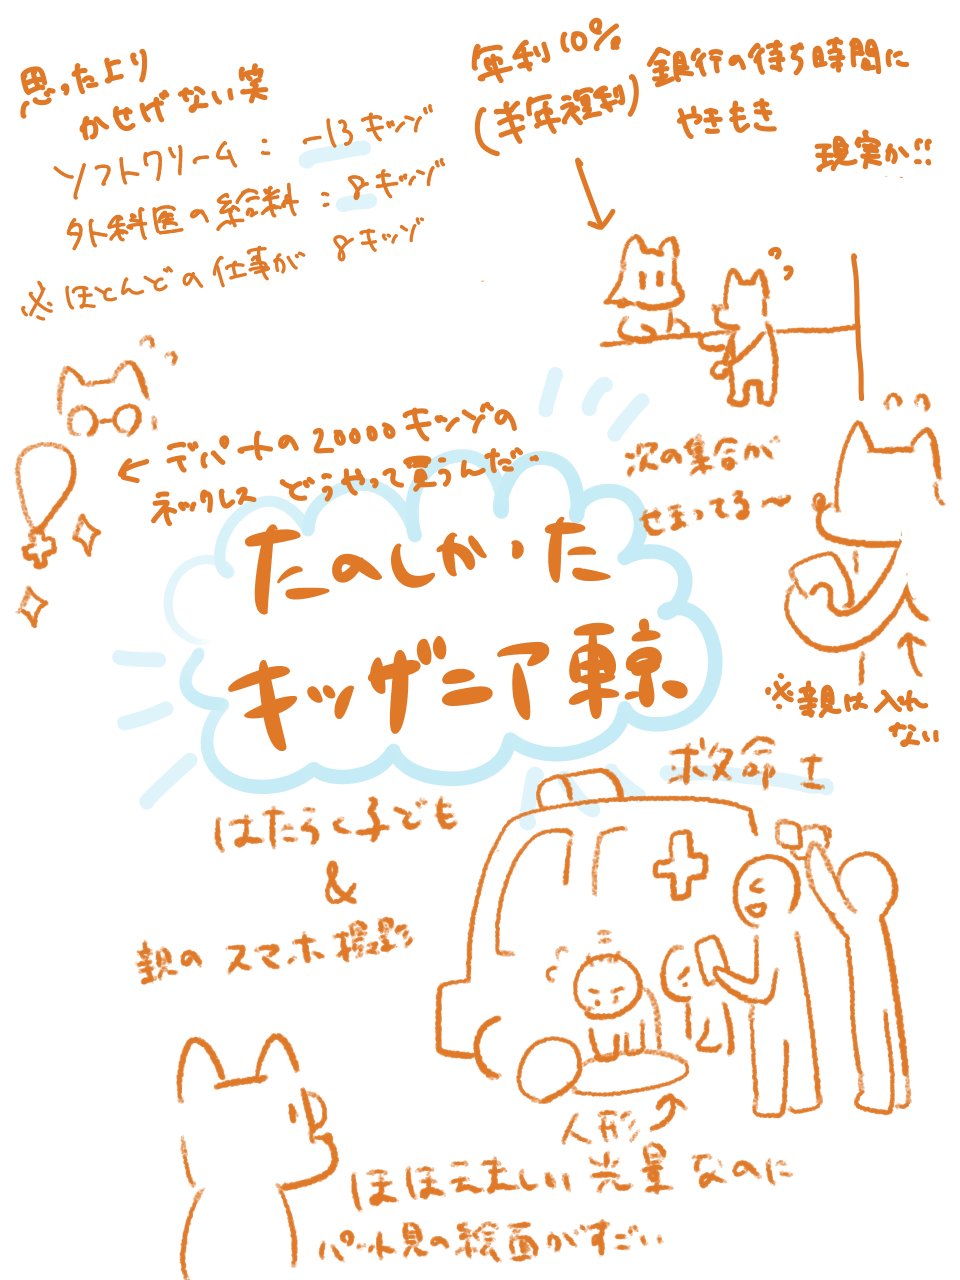 思ったより
かせげない笑
ソフトクリーム：－13キッゾ
外科医の給料：8キッゾ
※ほとんどの仕事が 8キッゾ
年利10%
(半年複利)
銀行の待ち時間に
やきもき
現実か!!
←デパートの20000キッゾの
ネックレス どうやって買うんだ…
次の集合が
せまってる〜
※親は入れ
ない
たのしかった
キッザニア東京
はたらく子ども
&
親のスマホ撮影
救命士
人形
ほほ元ましい光景なのに
パット見の絵面がすごい